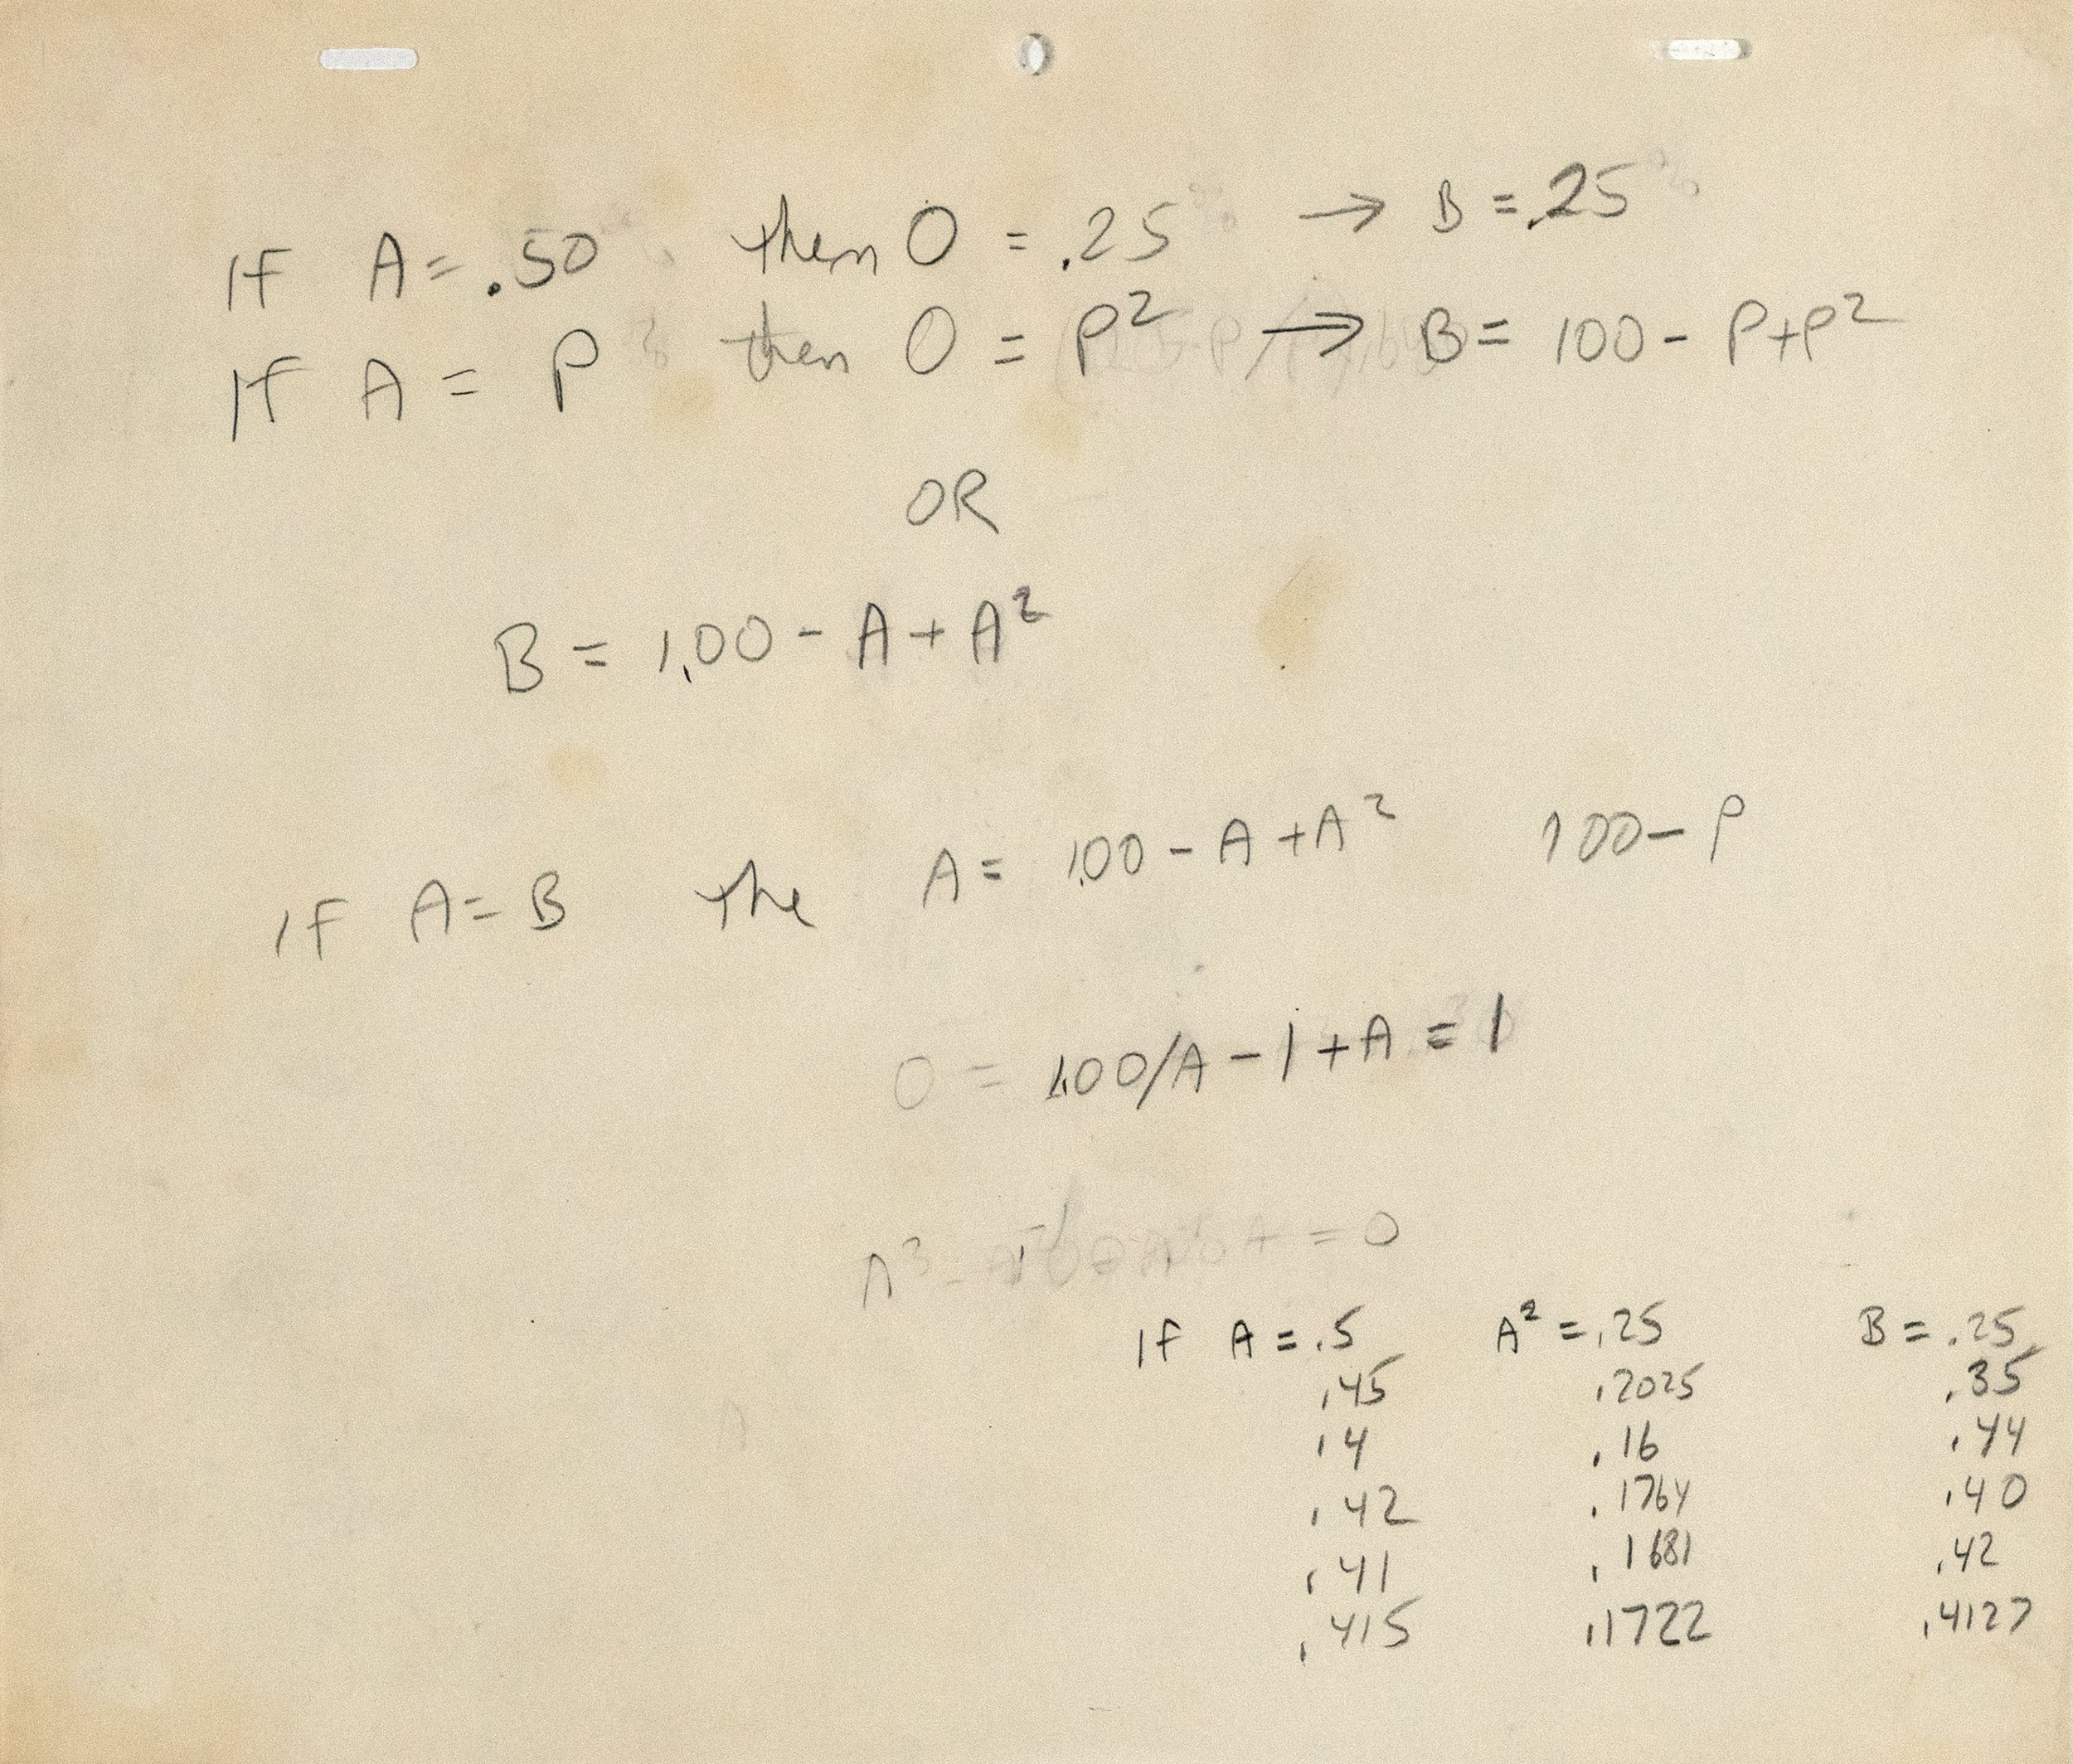 If A = .50 then O = .25 → B = .25
If A = P then O = P² → B = 100 - P+P²
OR
B = 1.00 - A + A²
If A = B the A = 1.00 - A + A² 100 - P
O = 1.00/A - 1 + A = 1
A³ - = 0
If A = .5 A² = .25 B = .25
.45 .2025 .35
.4 .16 .44
.42 .1764 .40
.41 .1681 .42
.415 .1722 .4127